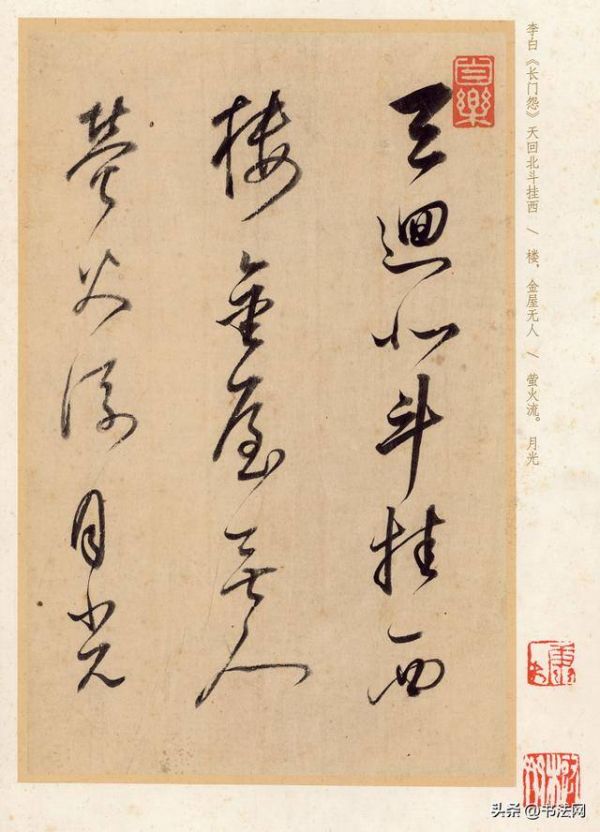 李白《长门怨》天回北斗挂西 / 楼，金屋无人 / 萤火流。月光
天迴北斗挂西
樓金屋無人
螢火流月光
头条 @书法网